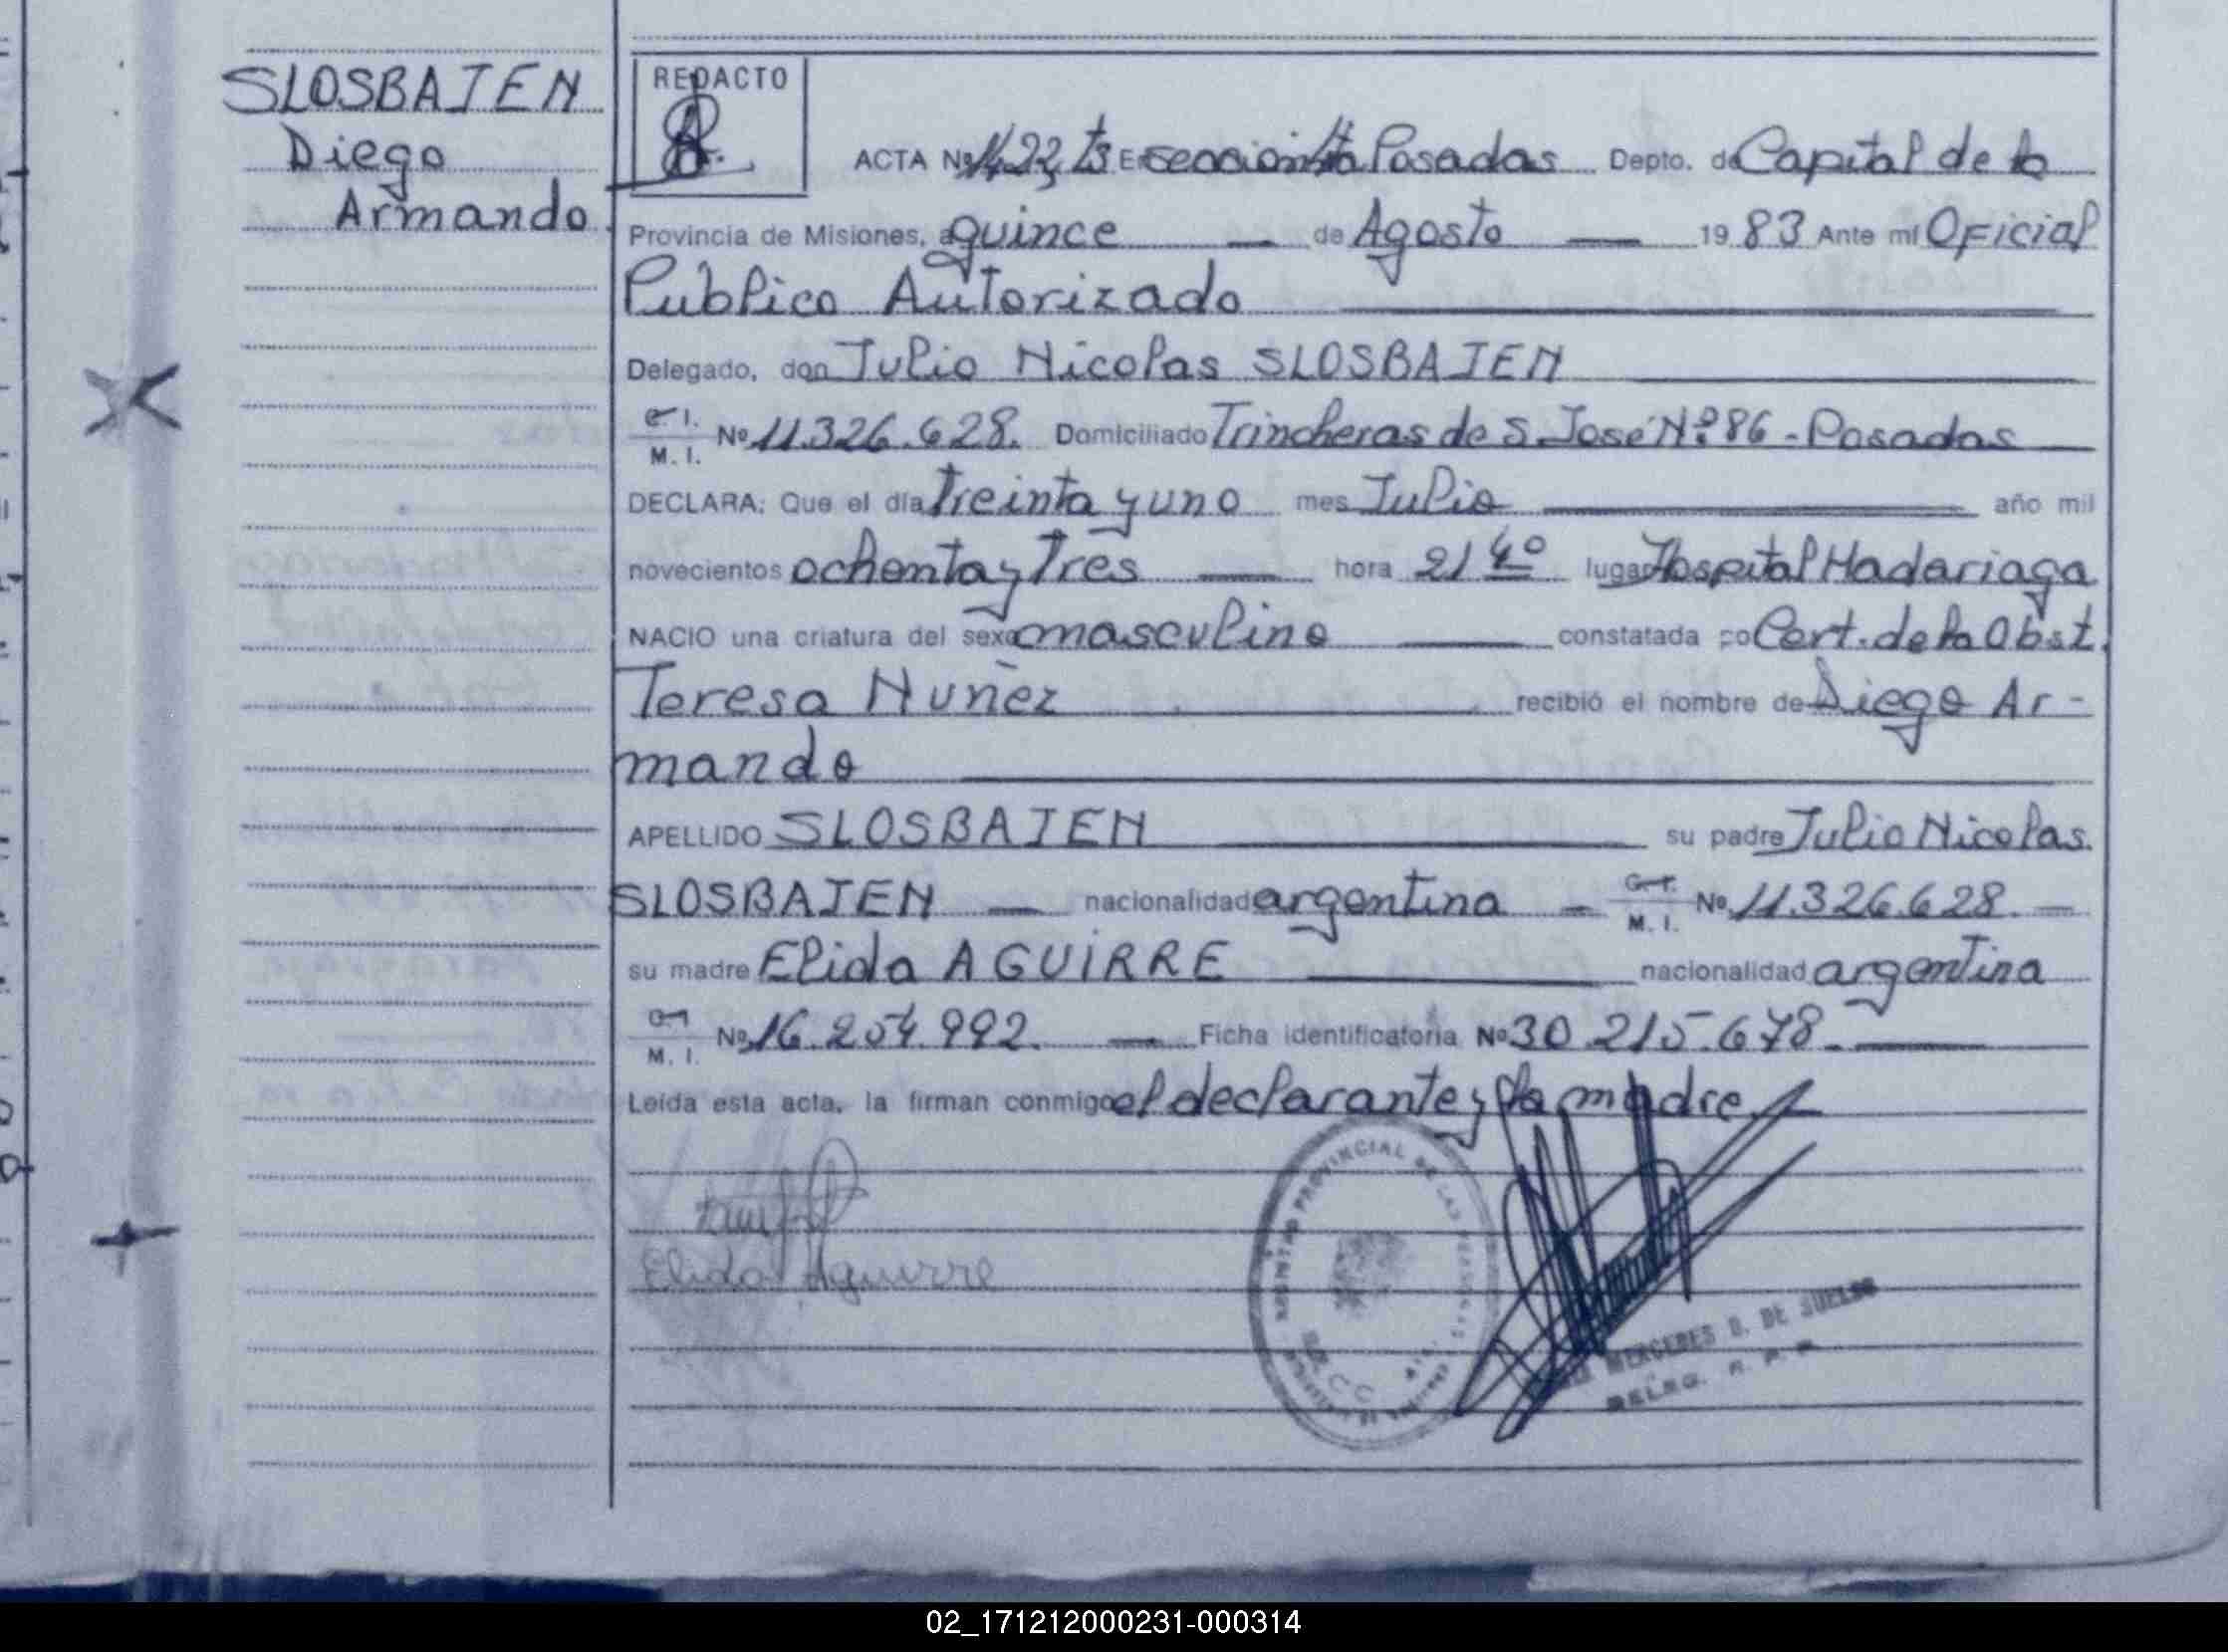 SLOSBAJEN
Diego
Armando
REDACTO
ACTA Nº 1422, tº3 En sección 1ª Posadas Depto. de Capital de la
Provincia de Misiones, a quince de Agosto 1983 Ante mí Oficial
Publico Autorizado
Delegado, don Julio Nicolas SLOSBAJEN
C.I. M.I. Nº 11.326.628. Domiciliado Trincheras de S. José Nº 86 - Posadas
DECLARA: Que el día treinta y uno mes Julio año mil
novecientos ochenta y tres hora 21 40 lugar Hospital Madariaga
NACIO una criatura del sexo masculino constatada po Cert. de la Obst.
Teresa Nuñez recibió el nombre de Diego Ar-
mando
APELLIDO SLOSBAJEN su padre Julio Nicolas
SLOSBAJEN nacionalidad argentina C.I. M.I. Nº 11.326.628.
su madre Elida AGUIRRE nacionalidad argentina
C.I. M.I. Nº 16.254.992. Ficha identificatoria Nº 30.215.678.
Leída esta acta, la firman conmigo el declarante y la madre
Elida Aguirre
PROVINCIAL DE LAS PERSONAS
MERCEDES B. DE SUELDO
DELEG. R. P. P.
02_171212000231-000314